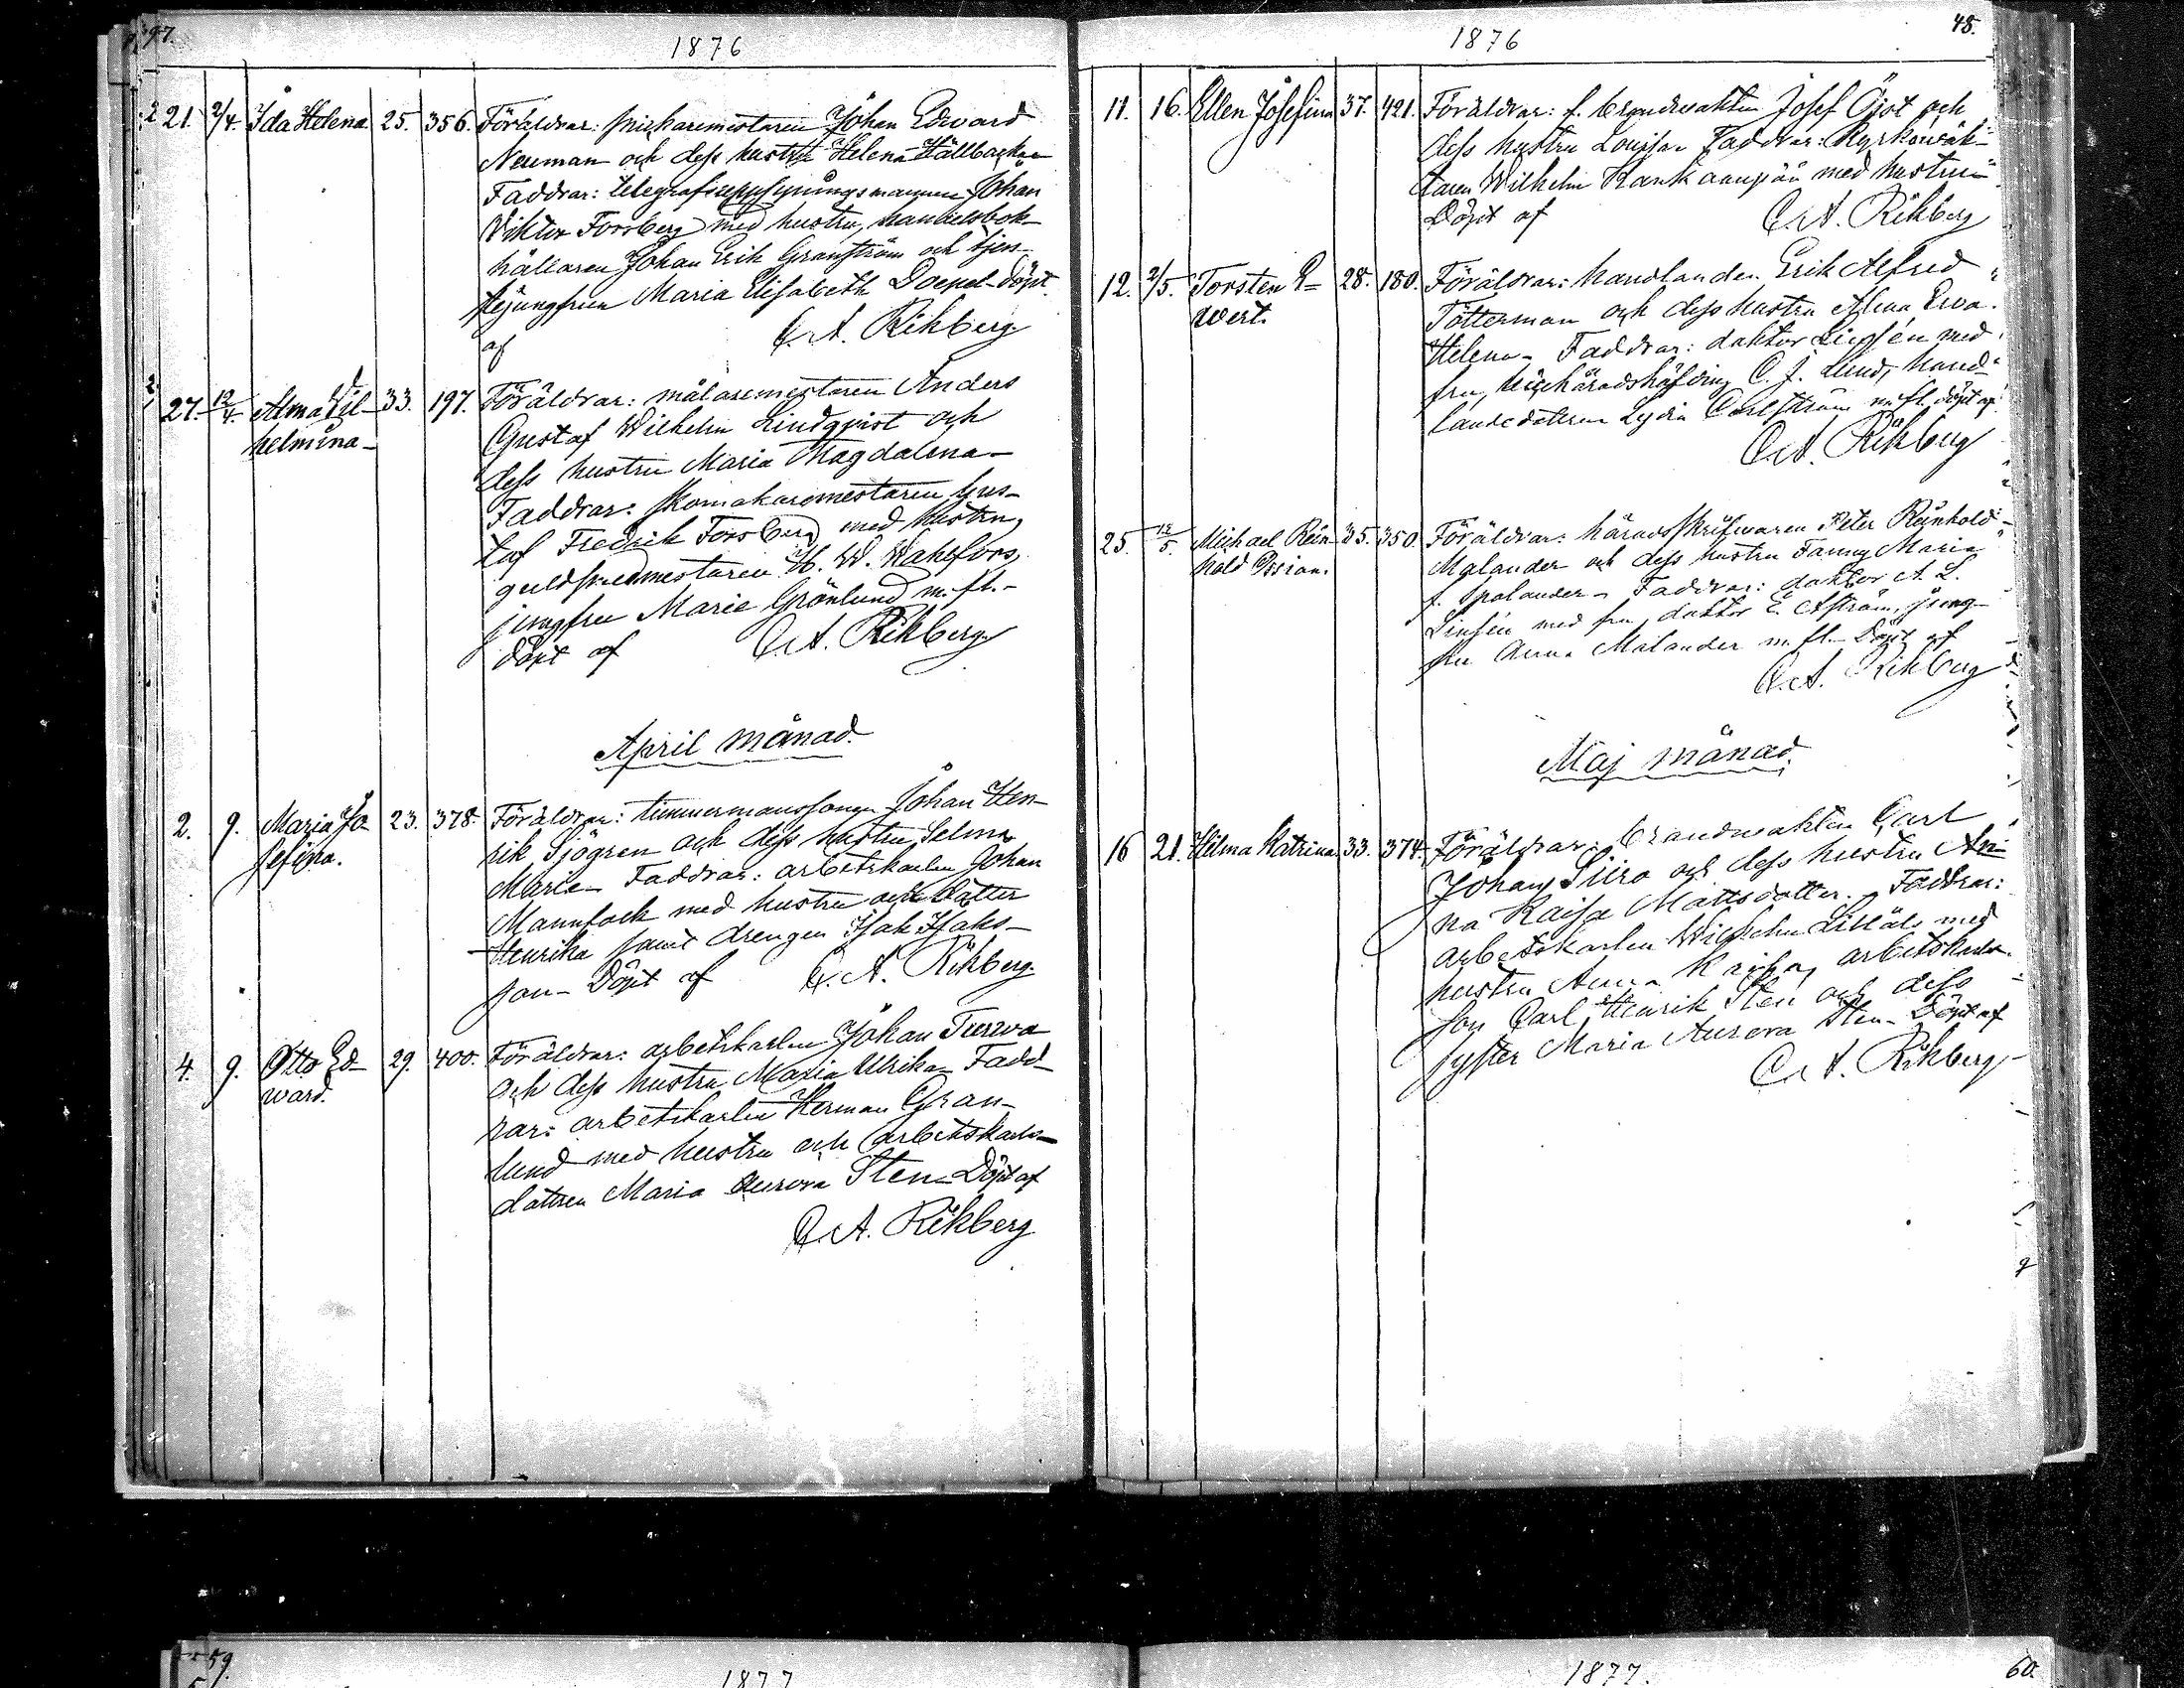 97.
1876
21. 2/4. Ida Helena 25. 356. Föräldrar: snickaremästaren Johan Edward
Neuman och dess hustru Helena Hällbacka
Faddrar: telegrafsuppsyningsmannen Johan
Viktor Forsberg med hustru, handelsbok-
hållaren Johan Erik Granström och tjen-
stejungfrun Maria Elisabeth Doepel - döpt
af C. A. Rikberg
27. 12/4. Alma Wil- 33. 197. Föräldrar: målaremestaren Anders
helmina - Gustaf Wilhelm Lindqvist och
dess hustru Maria Magdalena -
Faddrar: skomakaremestaren Gus-
taf Fredrik Forsberg med hustru,
guldsmedmestaren H. W. Wahlfors,
jungfru Maria Grönlund m. fl. -
döpt af C. A. Rikberg
April månad.
2. 9. Maria Jo- 23. 378. Föräldrar: timmermanssonen Johan Hen-
sefina. rik Sjögren och dess hustru Selma
Maria - Faddrar: arbetskarlen Johan
Mannfolk med hustru och dotter
Henrika samt drengen Isak Isaks-
son - Döpt af C. A. Rikberg.
4. 9. Otto Ed- 29. 400. Föräldrar: arbetskarlen Johan Turwa
ward. och dess hustru Maria Ulrika - Fadd-
rar: arbetskarlen Herman Gran-
lund med hustru och arbetskarls-
dottren Maria Aurora Sten - Döpt af
C. A. Rikberg
48.
1876
11. 16. Ellen Josefina 37. 421. Föräldrar: f. brandvakten Josef Öjst och
dess hustru Lovisa - Faddrar: Kyrkowäk-
taren Wilhelm Kankaanpää med hustru -
Döpt af C. A. Rikberg
12. 2/5. Torsten E- 28. 180. Föräldrar: handlanden Erik Alfred
wert. Tötterman och dess hustru Alma Erva
Helena - Faddrar: doktor Linsén med
fru, vicehäradshöfding C. J. Lund, hand-
landedottren Lydia Carlström m. fl. döpt af
C. A. Rikberg
25. 12/5. Michael Rein- 35. 350. Föräldrar: häradsskrifvaren Peter Reinhold
hold Ossian. Malander och dess hustru Fanny Maria
f. Polander - Faddrar: doktor A. L.
Linsén med fru, doktor E. Åström, jung-
fru Anna Malander m. fl. - Döpt af
C. A. Rikberg
Maj månad.
16 21. Hilma Katrina 33. 374. Föräldrar: brandvakten Carl
Johan Siiro och dess hustru An-
na Kaisa Mattsdotter. - Faddrar:
arbetskarlen Wilhelm Lilläls med
hustru Anna Kaisa, arbetskarls-
son Carl Henrik Sten och dess
syster Maria Aurora Sten - Döpt af
C. A. Rikberg -
59.
1877
1877.
60.